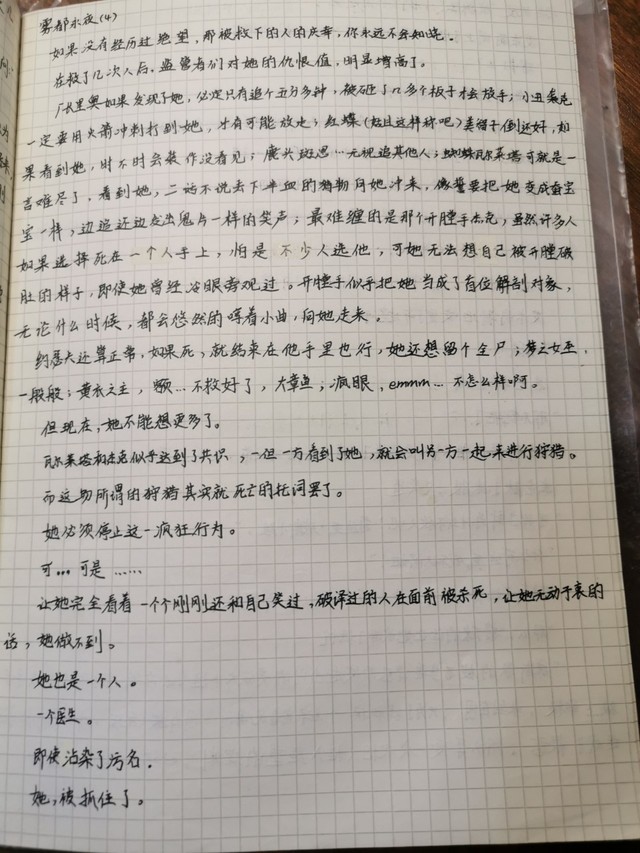 雾都永夜(4)
如果没有经历过绝望，那被救下的人的庆幸，你永远不会知晓。
在救了几次人后，监管者们对她的仇恨值，明显增高了。
厂长里奥如果发现了她，必定只有追个五分多种，被砸了几多个板子才会放手；小丑裘克
一定要用火箭冲刺打到她，才有可能放走；红蝶(姑且这样称呼吧)美智子倒还好，如
果看到她，时不时会装作没看见；鹿头班恩…无视追其他人；蜘蛛瓦尔莱塔可就是一
言难尽了，看到她，二话不说丢下半血的猎物向她冲来，像誓要把她变成蚕宝
宝一样，边追还边发出鬼片一样的笑声；最难缠的是那个开膛手杰克，虽然许多人
如果选择死在一个人手上，怕是不少人选他，可她无法想自己被开膛破
肚的样子，即使她曾经冷眼旁观过。开膛手似乎把她当成了首位解剖对象，
无论什么时候，都会悠然的哼着小曲，向她走来。
约瑟夫还算正常，如果死，就结束在他手里也行，她还想留个全尸；梦之女巫，
一般般；黄衣之主，额…不救好了，大章鱼；疯眼，emmm…不怎么样啊。
但现在，她不能想更多了。
瓦尔莱塔和杰克似乎达到了共识，一但一方看到了她，就会叫另一方一起来进行狩猎。
而这场所谓的狩猎其实就死亡的托词罢了。
她必须停止这一疯狂行为。
可…可是……
让她完全看着一个个刚刚还和自己笑过，破译过的人在面前被杀死，让她无动于衷的
话，她做不到。
她也是一个人。
一个医生。
即使沾染了污名。
她，被抓住了。